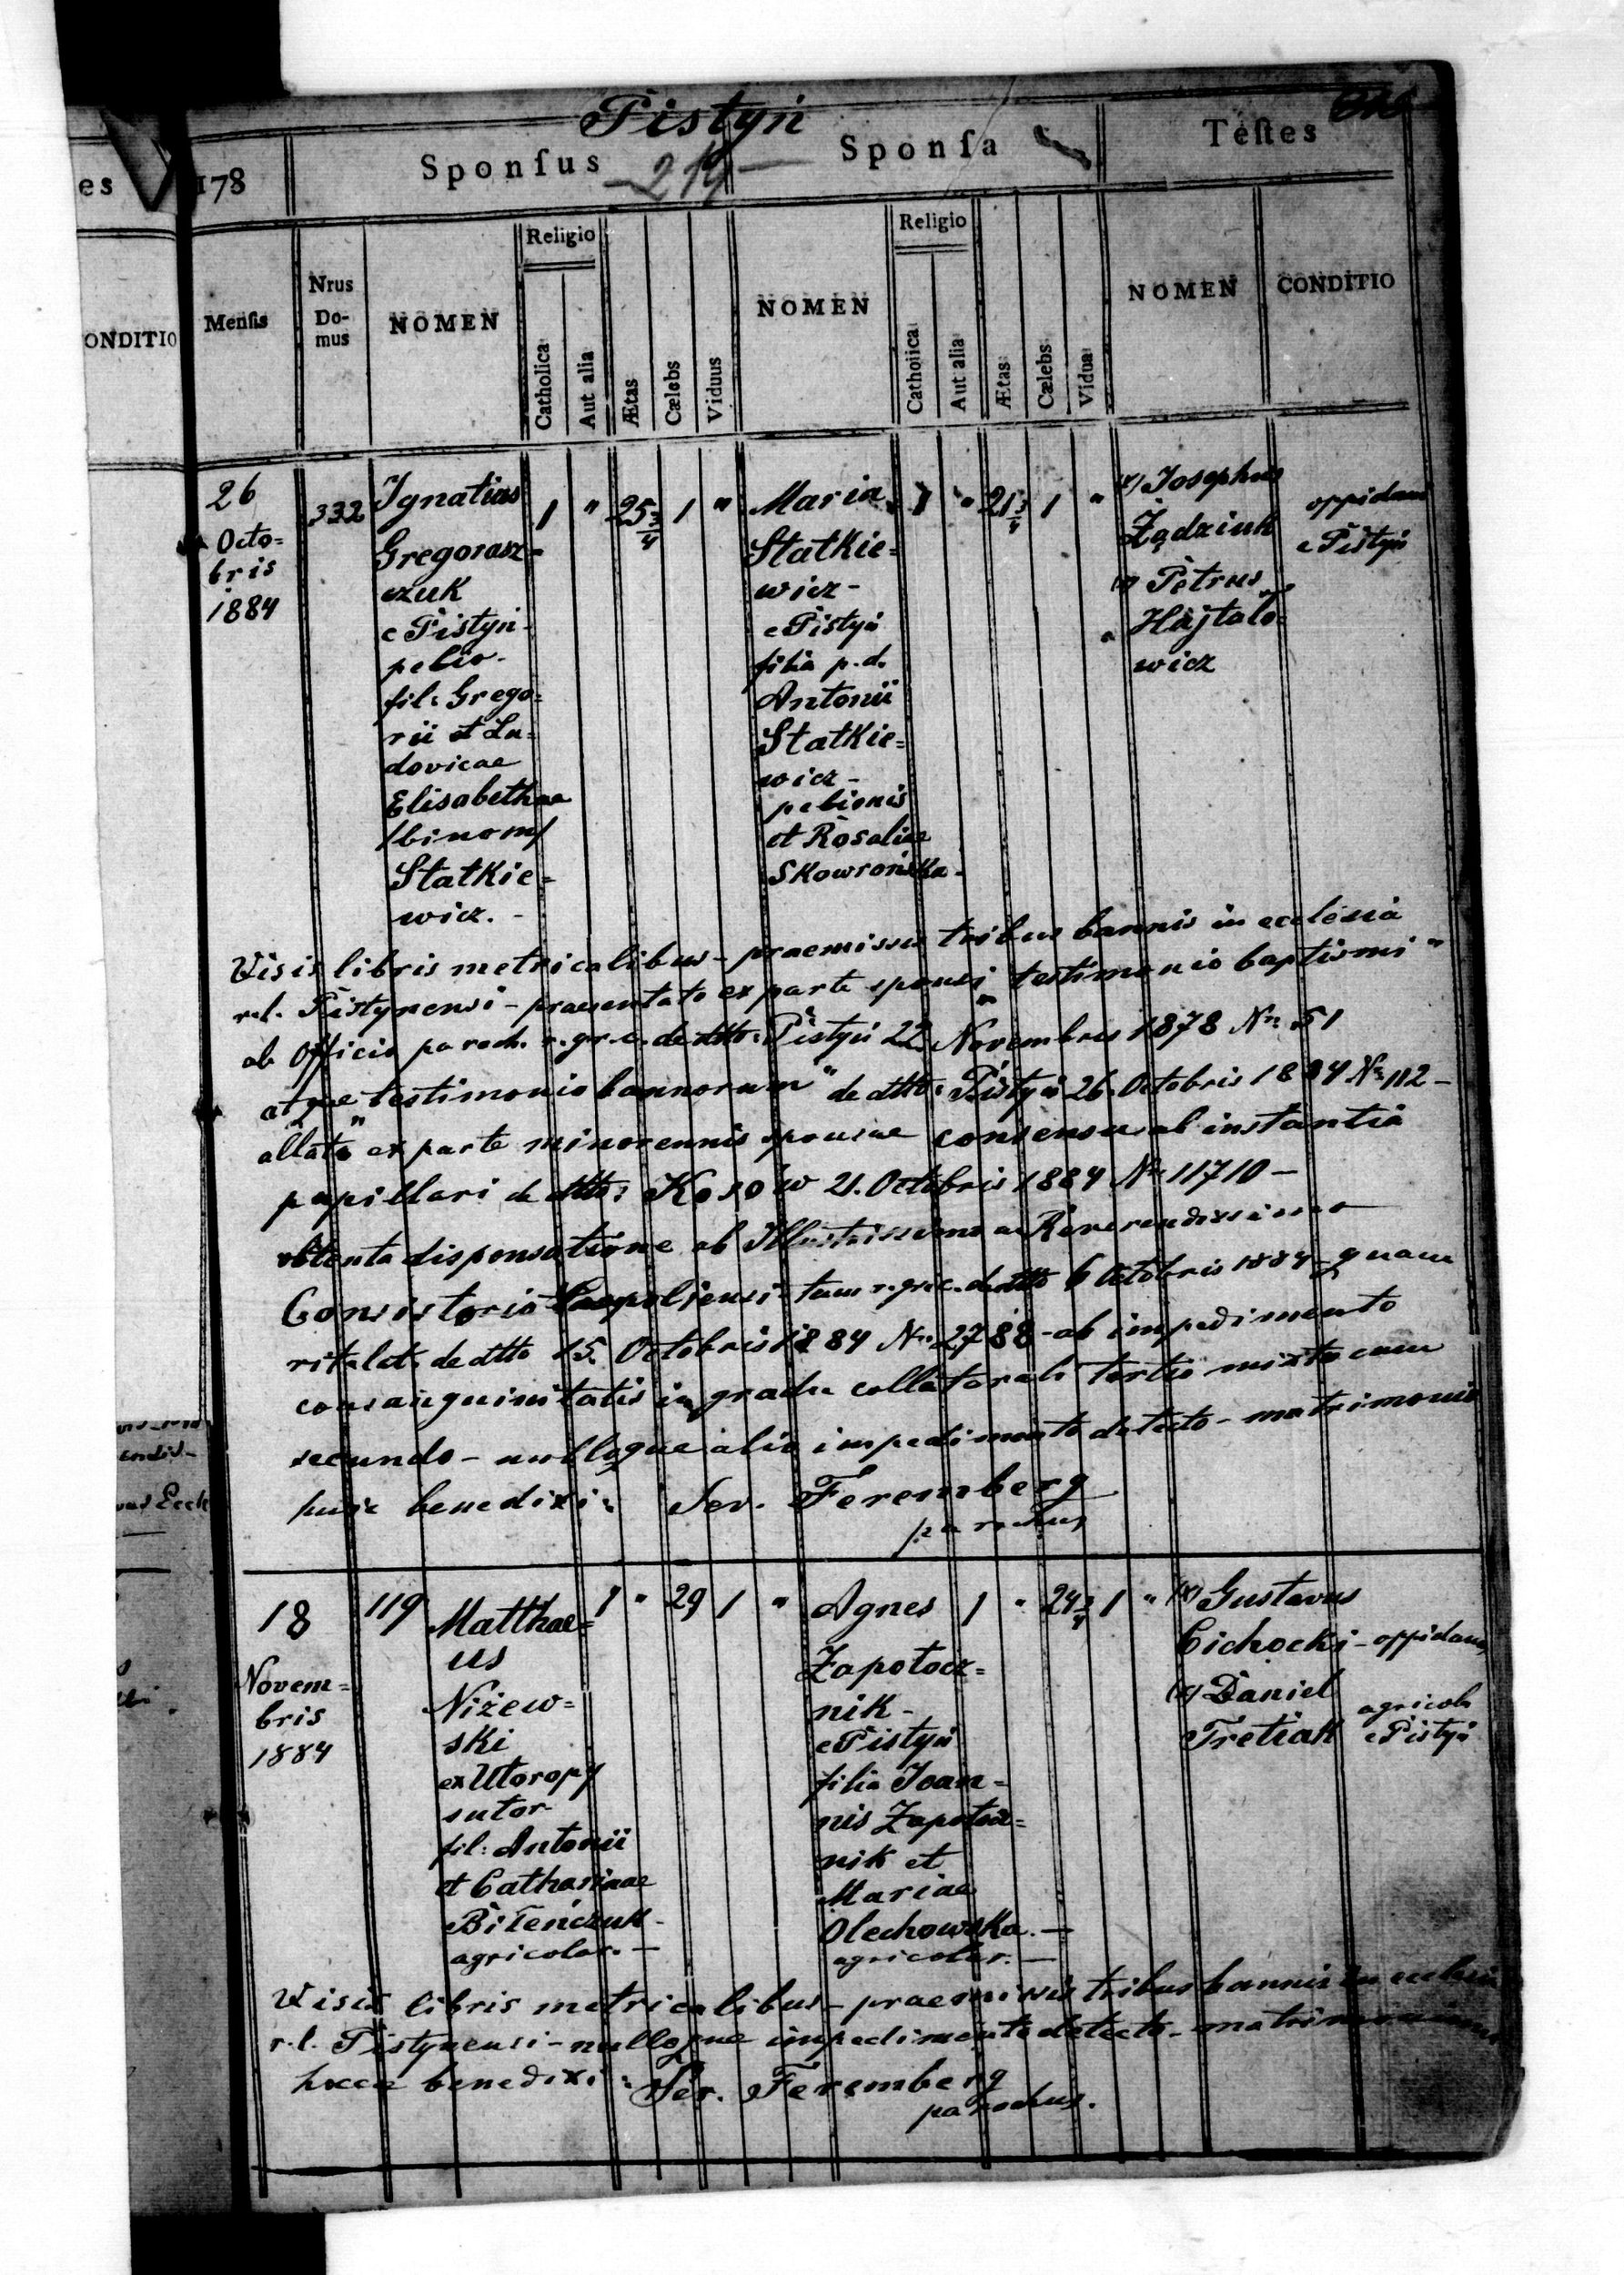 Pistyń
es 178 Sponſus 219 Sponſa Teſtes
ONDITIO
Menſis
Nrus Do-
mus
NOMEN
Religio
Catholica
Aut alia
Ætas
Cælebs
Viduus
NOMEN
Religio
Catholica
Aut alia
Ætas
Cælebs
Vidua
NOMEN
CONDITIO
26
Octo=
bris
1884
332
Ignatius
Gregorasz=
czuk
e Pistyń-
pelio-
fil: Grego=
rii et Lu=
dovicae
Elisabethae
/binom/
Statkie=
wicz. -
1 " 25 3/4 1 "
Maria
Statkie=
wicz -
e Pistyń
filia p. d.
Antonii
Statkie=
wicz -
pelionis
et Rosaliae
Skowrońska -
1 " 21 3/4 1 "
(x) Josephus
Żądziuk
(x) Petrus
Hajtalo=
wicz
oppidani
e Pistyń
Visis libris metricalibus - praemissis tribus bannis in ecclesia
r.l. Pistynensi - praesentato ex parte sponsi "testimonio baptismi"
ab Officio paroch. r. gr. c. de dtto: Pistyń 22. Novembris 1878 Nr. 51
atque "testimonio bannorum" de dtto: Pistyń 26. Octobris 1884 Nr. 112 -
allato ex parte minorennis sponsae consensu ab instantia
pupillari de dtto: Kosów 21. Octobris 1884 Nr 11710 -
obtenta dispensatione ab Illustrissimo ac Reverendissimo
Consistorio Leopoliensi tum r. gr. c. de dtto 6 Octobris 1884 quam
rit. lat. de dtto 15. Octobris 1884 Nr. 2788 - ab impedimento
consanguinitatis in gradu collaterali tertio mixto cum
secundo - nulloque alio impedimento detecto - matrimonio
hucce benedixi: Sev. Feremberg
parochus
18
Novem=
bris
1884
119
Matthae=
us
Niżew=
ski
ex Utoropy
sutor
fil: Antonii
et Catharinae
Bileńczuk -
agricolar. -
1 " 29 1 "
Agnes
Zapotocz=
nik -
e Pistyń
filia Joan=
nis Zapotocz=
nik et
Mariae
Olechowska. -
agricolar. -
1 " 24 3/4 1 "
(x) Gustavus
Cichocki - oppidanus
(x) Daniel
Tretiak
agricola
e Pistyń
Visis libris metricalibus - praemissis tribus bannis in ecclesia
r.l. Pistynensi - nulloque impedimento detecto - matrimonium
hocce benedixi: Sev. Feremberg
parochus.